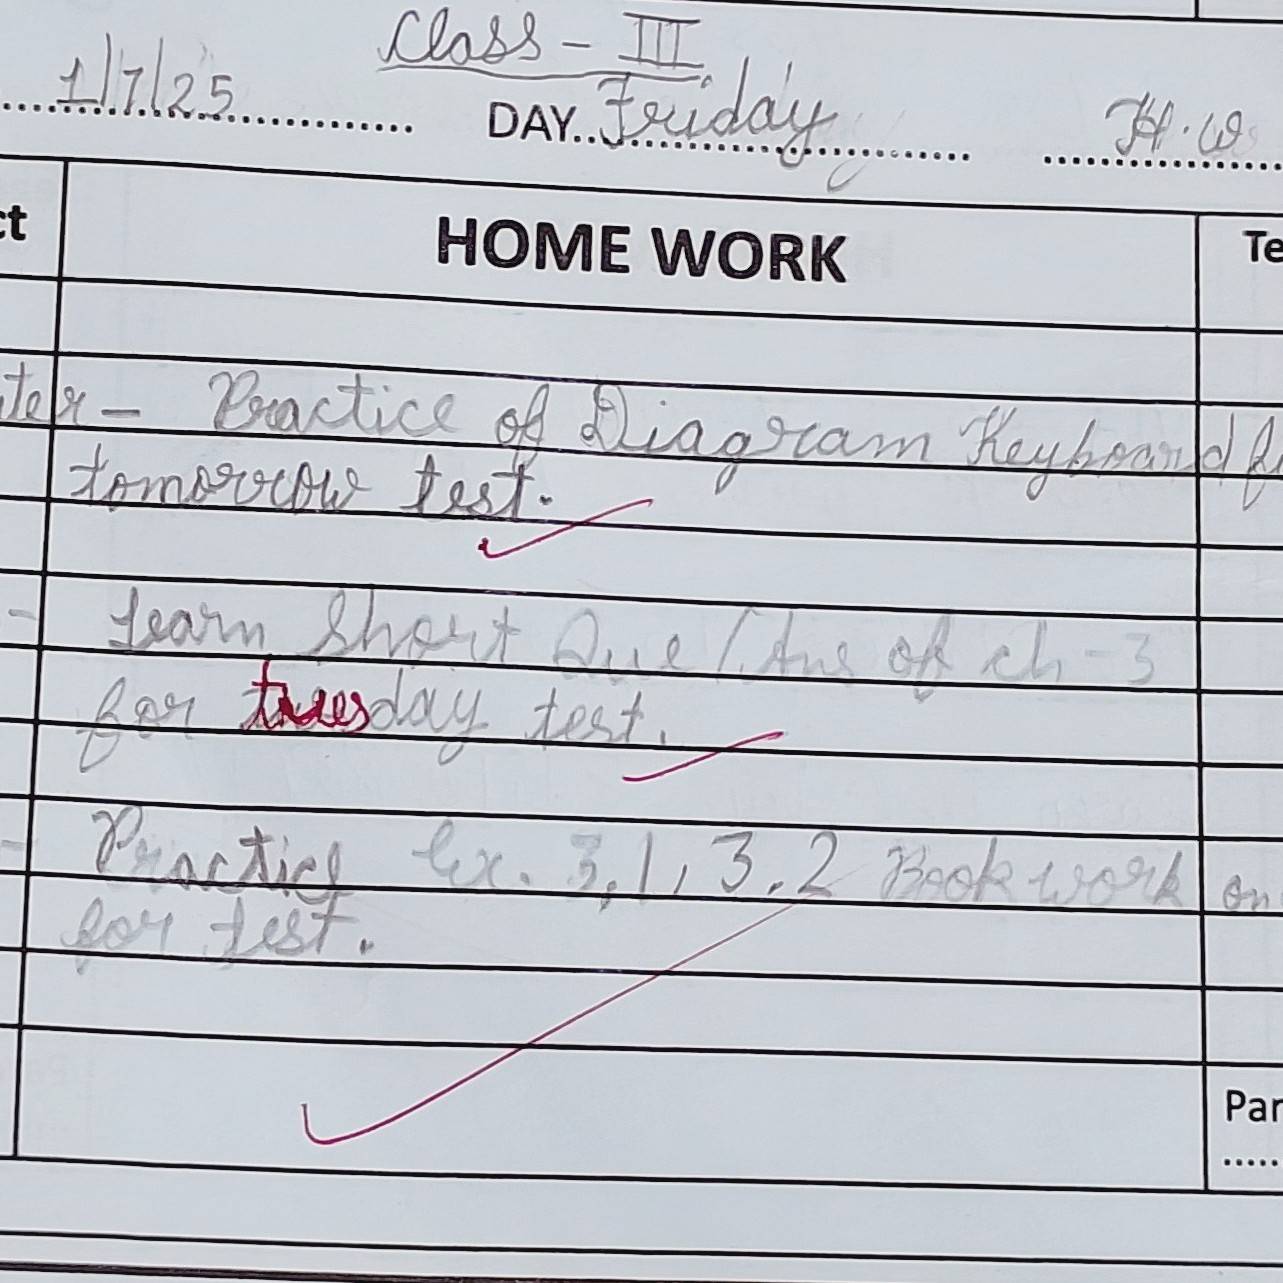 Class - III
1/7/25 DAY Friday H.W
ct HOME WORK Te
ter - Practice of Diagram Keyboard f
tomorrow test.
- Learn Short Que/Ans of ch - 3
for tuesday test.
- Practice Ex. 3.1, 3.2 Book work on
for test.
Par